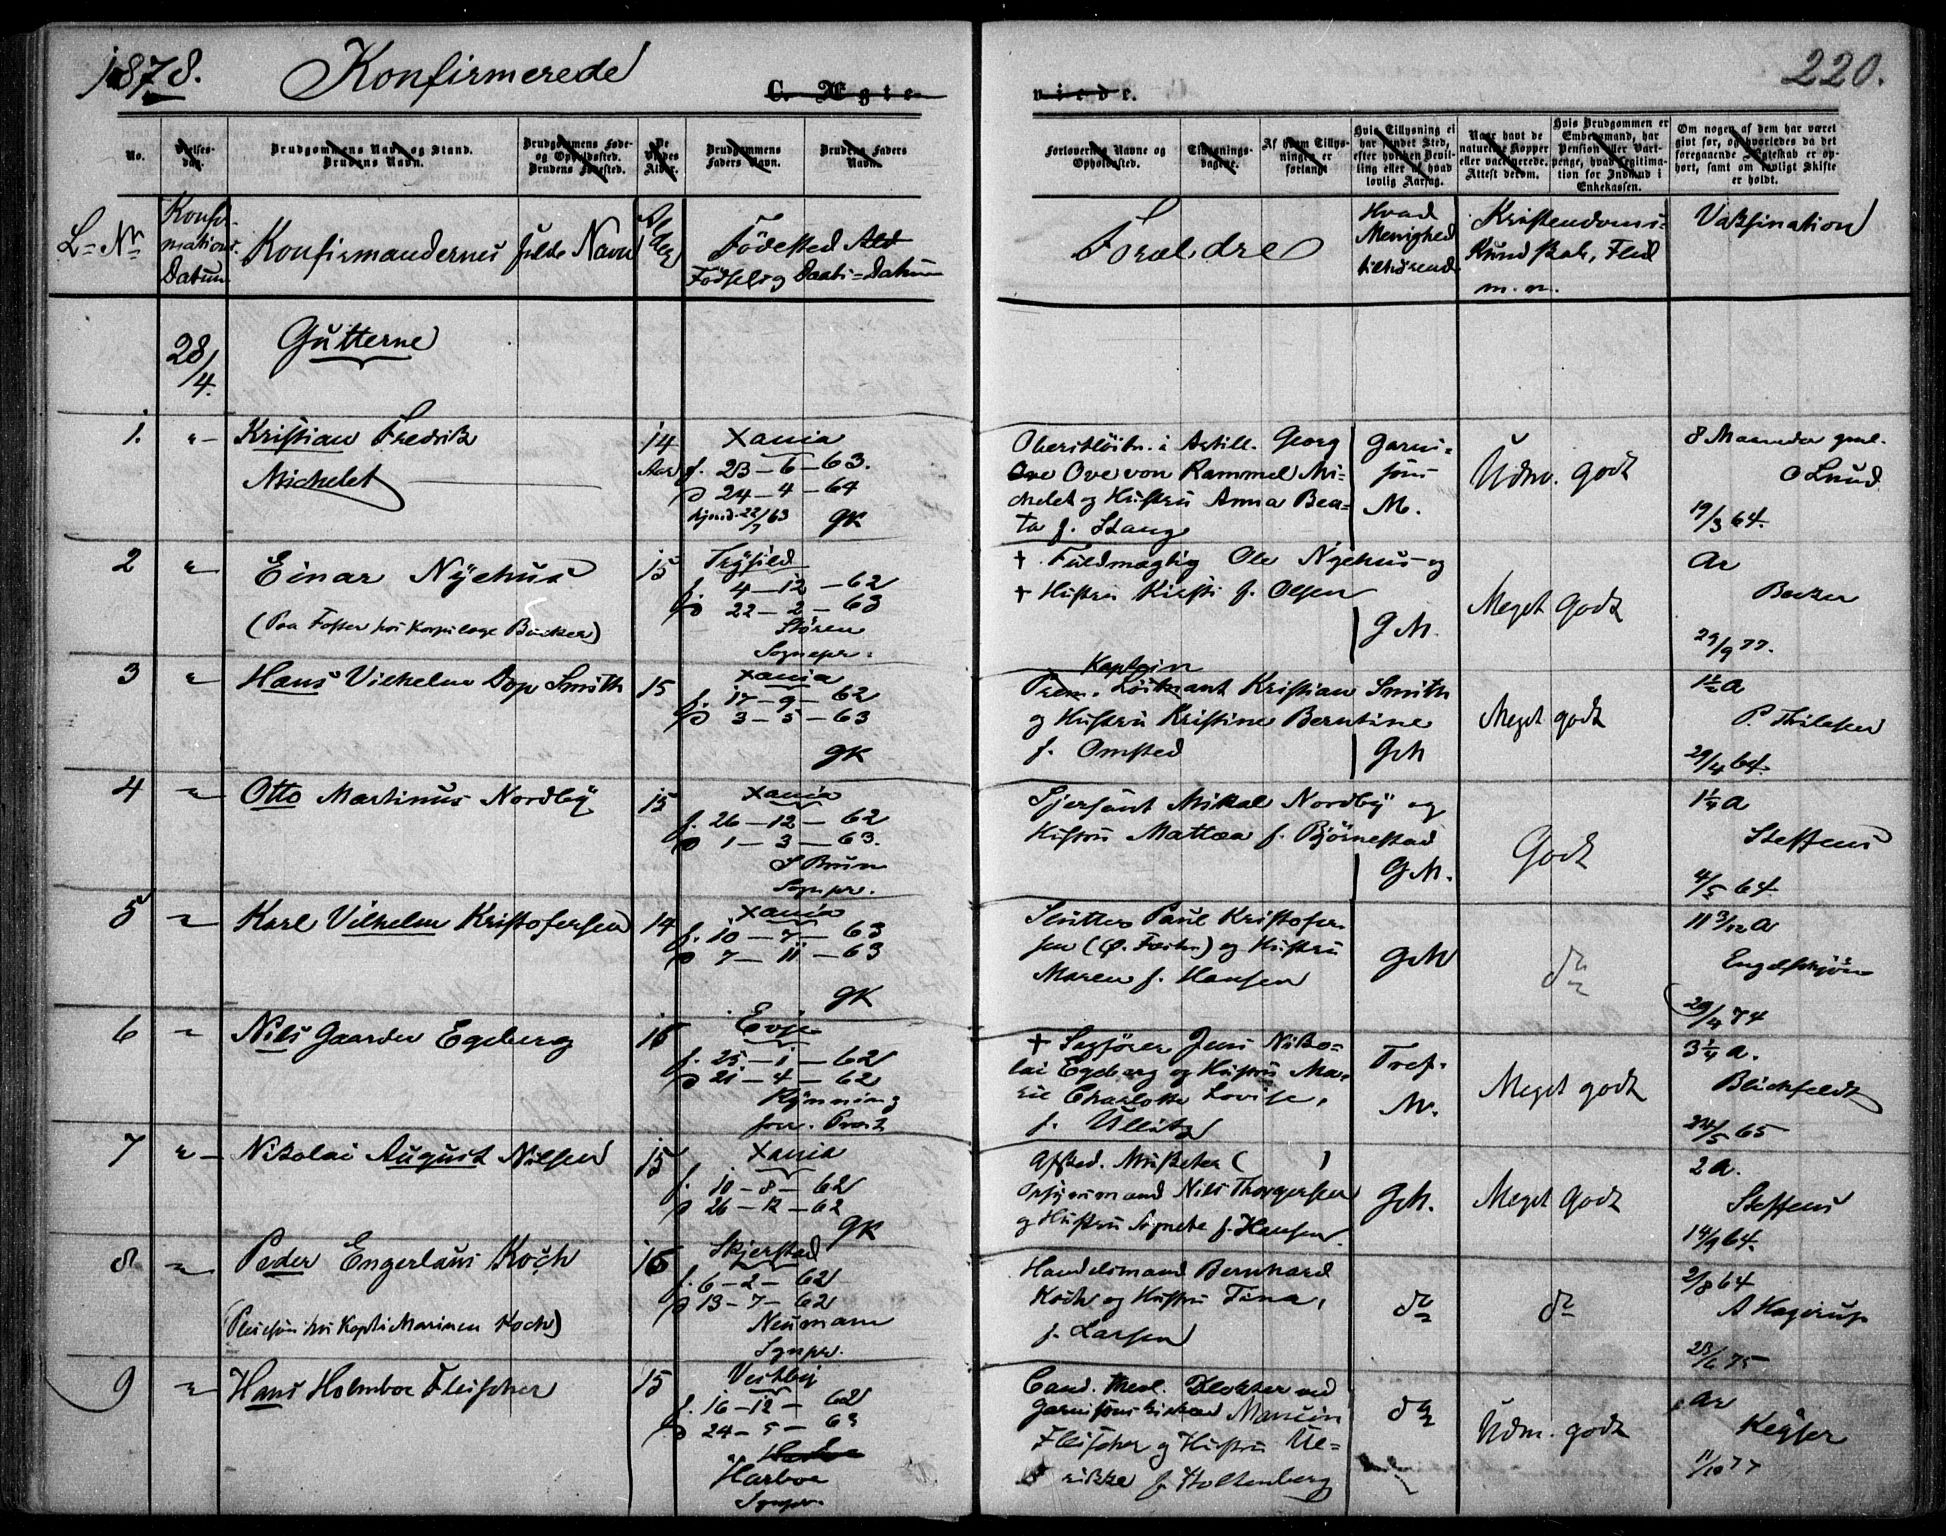 1878. Konfirmerede
C. Ægte-
viede.
220.
No.
Vielses-
dag.
Brudgommens Navn og Stand.
Brudens Navn.
Brudgommens Føde-
og Opholdssted.
Brudens Fødested.
De
Viedes
Alder.
Brudgommens
Faders Navn.
Brudens Faders
Navn.
Forlovernes Navne og
Opholdssted.
Tillysnings-
dagene.
Af hvem Tillys-
ningen er
forlangt
Hvis Tillysning ei
har fundet Sted,
efter hvilken Bevil-
ling eller af hvad
lovlig Aarsag.
Naar havt de
naturlige Kopper
eller vaccinerede.
Attest derom.
Hvis Brudgommen er
Embedsmand, har
Pension eller Vart-
penge, hvad Legitima-
tion for Indskud i
Enkekassen.
Om nogen af dem har været
gift før, og hvorledes da det
foregaaende Ægteskab er op-
hørt, samt om lovligt Skifte
er holdt.
L= Nr
Konfir-
mations
Datum
Konfirmandernes fulde Navn
Alder
Fødested Ald
Fødsels og Daabs=Datum
Forældre
Hvad
Menighed
tilhørende
Kristendoms-
kundskab, Flid
m. m.
Vaksination
28/4.
Gutterne
1. "
Kristian Fredrik
Michelet
14
Aar
Xania
f. 23-6-63.
D 24-4-64
hjmd. 22/7 63 GK
Oberstløitn. i Artill. Georg
Ove Ove von Rammel Mi-
chelet og Hustru Anna Bea-
ta f. Stang
Garni-
sons
M.
Udm. godt
8 Maaneder gml.
O Lund
19/3 64.
2 "
Einar Nyehus
(Paa Foster hos Korpslæge Backer)
15
Trysild
f. 4-12-62
D 22-2-63
Støren
Sognepr.
+ Fuldmægtig Ole Nyehus og
+ Hustru Kirsti f. Olsen
G M.
Meget godt
Ar
Backer
29/9 77.
3 "
Hans Vilhelm Dop Smith
15
Xania
f. 17-9-62
D 3-5-63
GK
Kaptein
Prem. Løitnant Kristian Smith
og Hustru Kristine Berntine
f. Omsted
GM
Meget godt
1½ a
P. Thilesen
29/4 64.
4 "
Otto Martinus Nordby
15
Xania
f. 26-12-62
D 1-3-63.
S Bruun
Sognpr.
Sjersant Mikal Nordby og
Hustru Mattea f. Bjørnestad
G M.
Godt
1¼ a
Steffens
4/5 64.
5 "
Karl Vilhelm Kristofersen
14
Xania
f. 10-7-63
D 7-11-63
GK
Slutter Paul Kristofer-
sen (Ø. Fæstn.) og Hustru
Maren f. Hansen
GM
do
11 3/12 a
Engelskjøn
29/4 74
6 "
Nils Gaarder Egeberg
16
Evje
f. 25-1-62
D 21-4-62
Kynning
forr. Præst
+ Sagfører Jens Niko-
lai Egeberg og Hustru Ma-
rie Charlotte Lovise,
f. Ullitz
Tref.
M.
Meget godt
3¼ a.
Blichfeldt
24/5 65
7 "
Nikolai August Nilsen
15
Xania
f. 10-8-62
D 26-12-62
GK
Afsked. Musketer ( )
Opsynsmand Nils Thorgersen
og Hustru Agnete f. Hansen.
GM.
Meget Godt
2 a.
Steffens
14/9 64.
8 "
Peder Engerlaus Koch
(Pleiesøn hos Kapt. i Marinen Koch)
16
Skjerstad
f. 6-2-62
D 13-7-62
Neumann
Sgnpr.
Handelsmand Bernhard
Koch og Hustru Tina,
f. Larsen
do
do
2/8 64
A Hagerup
23/6 75
9 "
Hans Holmboe Fleischer
15
Vestby
f. 16-12-62
D 24-5-63
Harboe
Sgnpr.
Cand. theol. Klokker ved
Garnisonskirken
Fleischer og Hustru Ul-
rikke f. Holtenberg
do
Udm. godt
Ar
Keyser
11/10 77